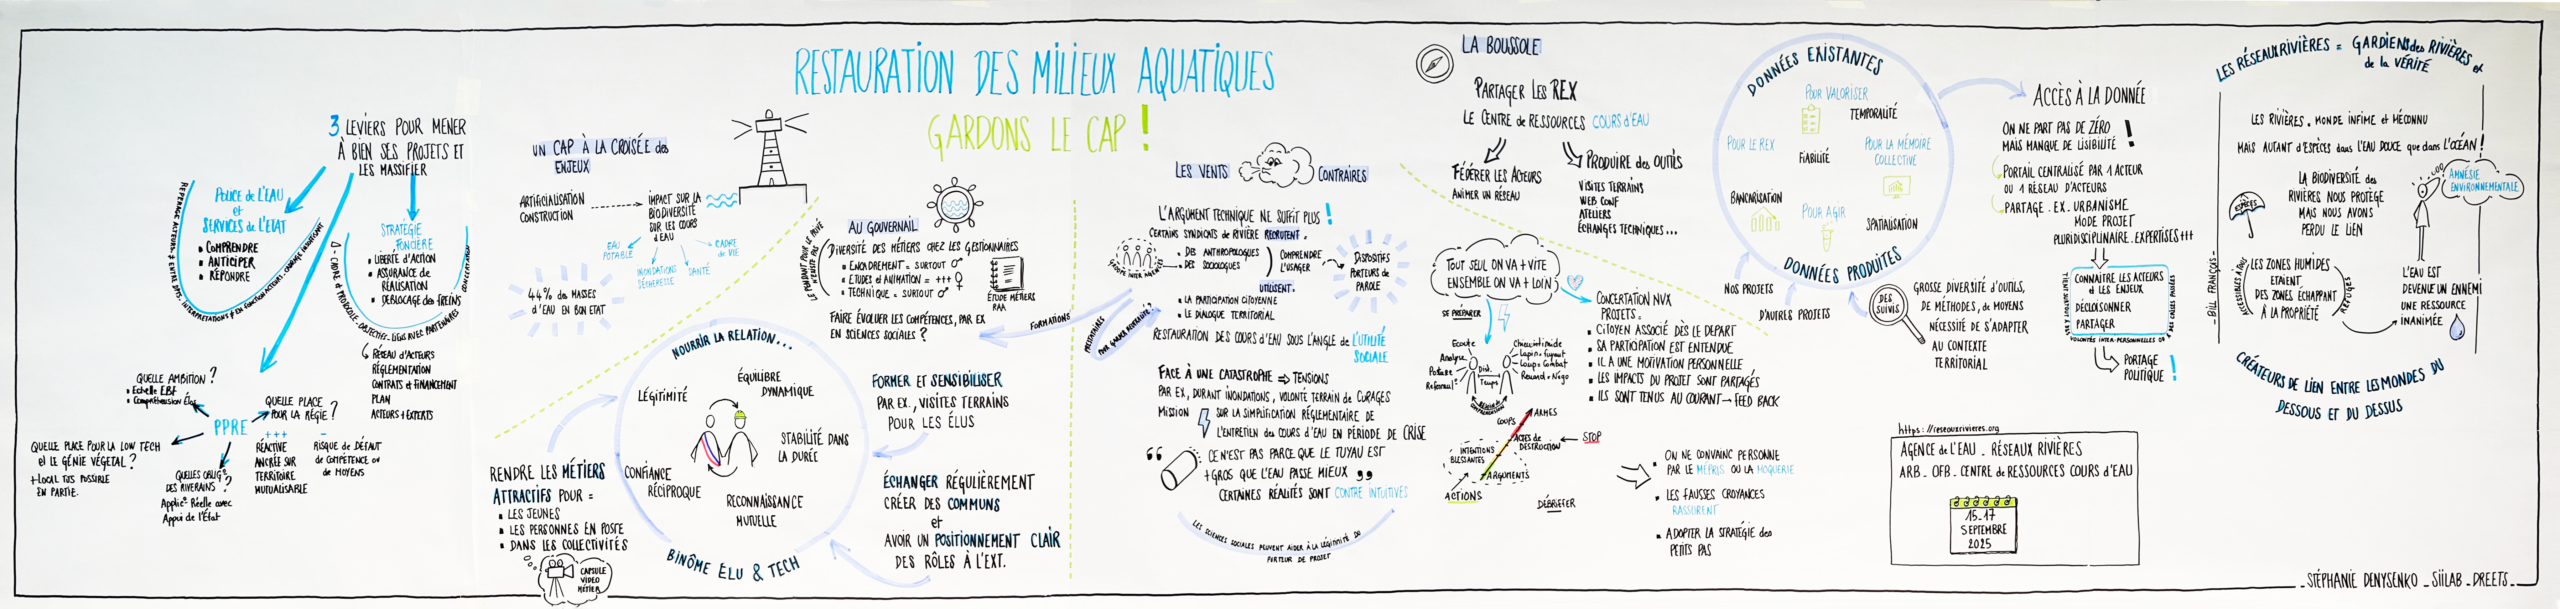 RESTAURATION DES MILIEUX AQUATIQUES
GARDONS LE CAP !
3 LEVIERS POUR MENER
À BIEN SES PROJETS ET
LES MASSIFIER
POLICE de L'EAU
et
SERVICES de L'ETAT
COMPRENDRE
ANTICIPER
RÉPONDRE
STRATÉGIE
FONCIÈRE
LIBERTÉ D'ACTION
ASSURANCE de
RÉALISATION
DEBLOCAGE des FREINS
CONCERTATION
RÉSEAU d'ACTEURS
RÉGLEMENTATION
CONTRATS et FINANCEMENT
PLAN
ACTEURS + EXPERTS
PPRE
QUELLE AMBITION ?
Echelle EBF
QUELLE PLACE
POUR LA RÉGIE ?
+++
RÉACTIVE
ANCRÉE SUR
TERRITOIRE
MUTUALISABLE
-
RISQUE de DÉFAUT
de COMPÉTENCE ou
de MOYENS
QUELLE PLACE POUR LA LOW TECH
et LE GÉNIE VÉGÉTAL ?
+ LOCAL TJS POSSIBLE
EN PARTIE.
QUELLES OBLIG°
DES RIVERAINS ?
Applic° Réelle avec
Appui de l'État
UN CAP À LA CROISÉE des
ENJEUX
ARTIFICIALISATION
CONSTRUCTION
IMPACT SUR LA
BIODIVERSITÉ
SUR LES COURS
d'EAU
EAU
POTABLE
INONDATIONS
SÉCHERESSE
SANTÉ
CADRE
de VIE
44% des MASSES
d'EAU EN BON ETAT
AU GOUVERNAIL
DIVERSITÉ DES MÉTIERS CHEZ LES GESTIONNAIRES
ENCADREMENT = SURTOUT ♂
ETUDES et ANIMATION = +++ ♀
TECHNIQUE = SURTOUT ♂
ÉTUDE MÉTIERS
RAA
FAIRE ÉVOLUER LES COMPÉTENCES, PAR EX
EN SCIENCES SOCIALES ?
FORMATIONS
NOURRIR LA RELATION...
LÉGITIMITÉ
ÉQUILIBRE
DYNAMIQUE
STABILITÉ DANS
LA DURÉE
CONFIANCE
RÉCIPROQUE
RECONNAISSANCE
MUTUELLE
BINÔME ÉLU & TECH
RENDRE LES MÉTIERS
ATTRACTIFS POUR =
LES JEUNES
LES PERSONNES EN POSTE
DANS LES COLLECTIVITÉS
CAPSULE
VIDEO
MÉTIER
FORMER ET SENSIBILISER
PAR EX., VISITES TERRAINS
POUR LES ÉLUS
ÉCHANGER RÉGULIÈREMENT
CRÉER DES COMMUNS
et
AVOIR UN POSITIONNEMENT CLAIR
DES RÔLES À L'EXT.
LES VENTS CONTRAIRES
L'ARGUMENT TECHNIQUE NE SUFFIT PLUS !
CERTAINS SYNDICATS de RIVIÈRE RECRUTENT =
DES ANTHROPOLOGUES
DES SOCIOLOGUES
COMPRENDRE
L'USAGER
DISPOSITIFS
PORTEURS de
PAROLE
UTILISENT =
LA PARTICIPATION CITOYENNE
LE DIALOGUE TERRITORIAL
RESTAURATION DES COURS d'EAU SOUS L'ANGLE de L'UTILITÉ
SOCIALE
FACE À UNE CATASTROPHE ⇨ TENSIONS
PAR EX, DURANT INONDATIONS, VOLONTÉ TERRAIN de CURAGES
MISSION SUR LA SIMPLIFICATION RÉGLEMENTAIRE DE
L'ENTRETIEN des COURS D'EAU EN PÉRIODE DE CRISE
“ CE N'EST PAS PARCE QUE LE TUYAU EST
+ GROS QUE L'EAU PASSE MIEUX ”
CERTAINES RÉALITÉS SONT CONTRE INTUITIVES
LES SCIENCES SOCIALES PEUVENT AIDER À LA LÉGITIMITÉ DU
PORTEUR DE PROJET
LA BOUSSOLE
PARTAGER LES REX
LE CENTRE de RESSOURCES COURS d'EAU
FÉDÉRER LES ACTEURS
ANIMER UN RÉSEAU
PRODUIRE des OUTILS
VISITES TERRAINS
WEB CONF
ATELIERS
ÉCHANGES TECHNIQUES...
TOUT SEUL ON VA + VITE
ENSEMBLE ON VA + LOIN
SE PRÉPARER
Ecoute
Analyse
Posture
Dist.
Temps
Lapin = Fuyant
Loup = Combat
Renard = Négo
ARMES
COUPS
ACTES de
DESTRUCTION
STOP
INTENTIONS
BLESSANTES
ARGUMENTS
ACTIONS
DÉBRIEFER
CONCERTATION NVX
PROJETS =
CITOYEN ASSOCIÉ DÈS LE DEPART
SA PARTICIPATION EST ENTENDUE
IL A UNE MOTIVATION PERSONNELLE
LES IMPACTS DU PROJET SONT PARTAGÉS
ILS SONT TENUS AU COURANT → FEED BACK
ON NE CONVAINC PERSONNE
PAR LE MÉPRIS OU LA MOQUERIE
LES FAUSSES CROYANCES
RASSURENT
ADOPTER LA STRATÉGIE des
PETITS PAS
DONNÉES EXISTANTES
POUR VALORISER
TEMPORALITÉ
POUR LE REX
FIABILITÉ
POUR LA MÉMOIRE
COLLECTIVE
BANCARISATION
POUR AGIR
SPATIALISATION
DONNÉES PRODUITES
NOS PROJETS
D'AUTRES PROJETS
DES
SUIVIS
GROSSE DIVERSITÉ d'OUTILS,
DE MÉTHODES, de MOYENS
NÉCESSITÉ DE S'ADAPTER
AU CONTEXTE
TERRITORIAL
ACCÈS À LA DONNÉE
ON NE PART PAS DE ZÉRO
MAIS MANQUE DE LISIBILITÉ !
PORTAIL CENTRALISÉ PAR 1 ACTEUR
OU 1 RÉSEAU D'ACTEURS
PARTAGE . EX . URBANISME
MODE PROJET
PLURIDISCIPLINAIRE . EXPERTISES +++
CONNAÎTRE LES ACTEURS
et LES ENJEUX
DÉCLOISONNER
PARTAGER
PORTAGE
POLITIQUE !
https://reseauxrivieres.org
AGENCE de L'EAU _ RÉSEAUX RIVIÈRES
ARB _ OFB _ CENTRE de RESSOURCES COURS d'EAU
15-17
SEPTEMBRE
2025
LES RÉSEAUX RIVIÈRES = GARDIENS des RIVIÈRES et
de la VÉRITÉ
LES RIVIÈRES = MONDE INFIME et MÉCONNU
MAIS AUTANT d'ESPÈCES dans L'EAU DOUCE que dans L'OCÉAN !
ESPÈCES
LA BIODIVERSITÉ des
RIVIÈRES NOUS PROTÈGE
MAIS NOUS AVONS
PERDU LE LIEN
AMNÉSIE
ENVIRONNEMENTALE
BILL FRANÇOIS
ACCESSIBLES À TOUS
LES ZONES HUMIDES
ETAIENT
DES ZONES ÉCHAPPANT
À LA PROPRIÉTÉ
REFUGES
L'EAU EST
DEVENUE UN ENNEMI
UNE RESSOURCE
INANIMÉE
CRÉATEURS DE LIEN ENTRE LES MONDES DU
DESSOUS ET DU DESSUS
_STÉPHANIE DENYSENKO _ SIILAB _ DREETS_